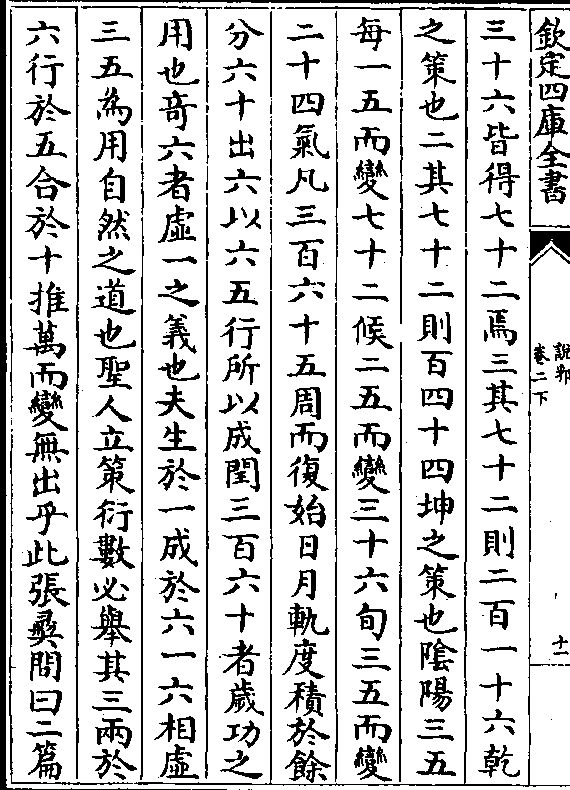 欽定四庫全書
說郛
卷二下
十一
三十六皆得七十二焉三其七十二則二百一十六乾
之策也二其七十二則百四十四坤之策也陰陽三五
每一五而變七十二候二五而變三十六旬三五而變
二十四氣凡三百六十五周而復始日月軌度積於餘
分六十出六以六五行所以成閏三百六十者歲功之
用也竒六者虛一之義也夫生於一成於六一六相虛
三五為用自然之道也聖人立策衍數必舉其三兩於
六行於五合於十推萬而變無出乎此張彞問曰二篇